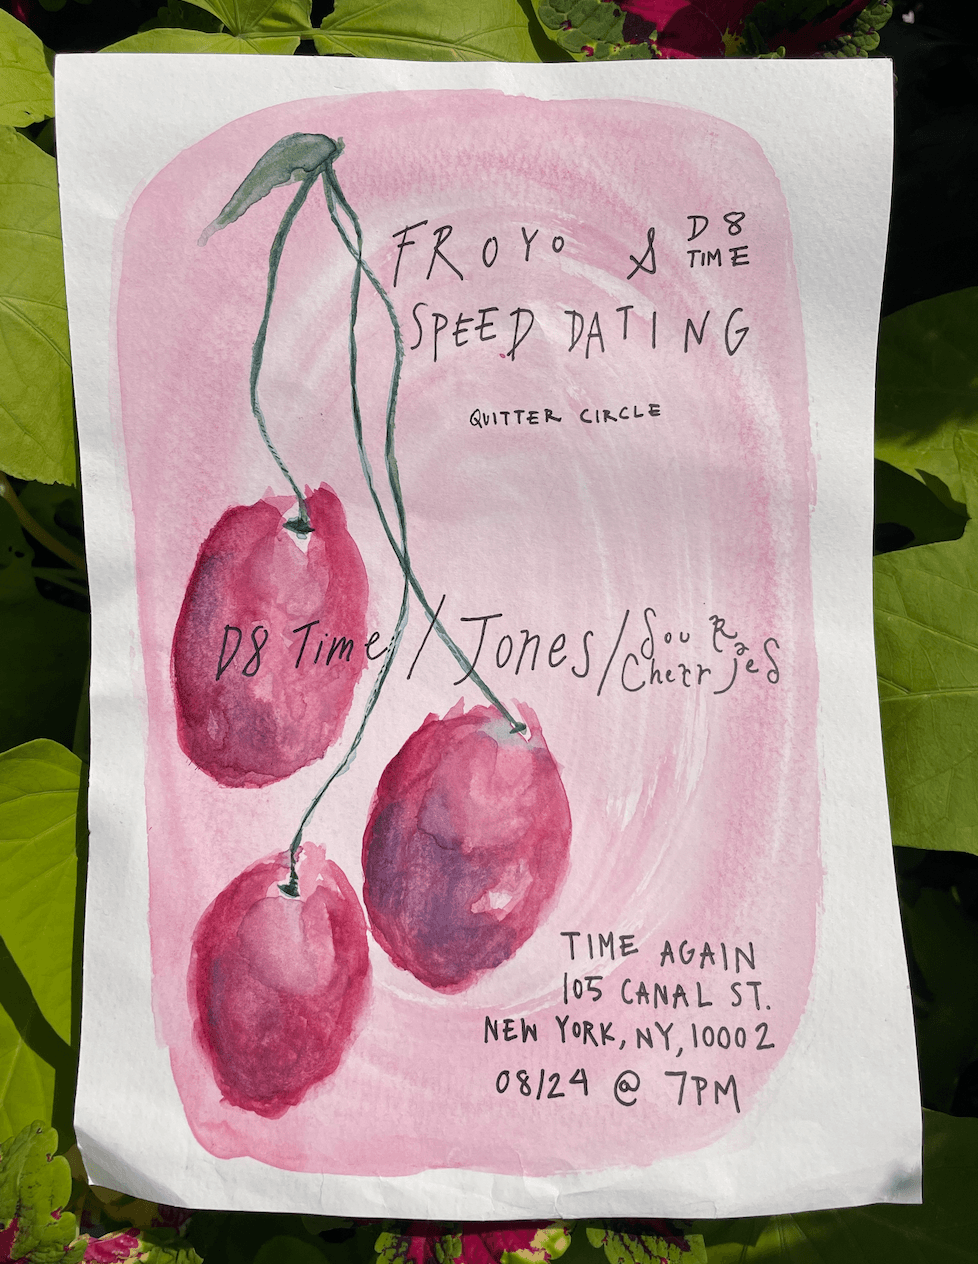 FROYO & D8 TIME
SPEED DATING
QUITTER CIRCLE
D8 Time / Jones / Sour Cherries
TIME AGAIN
105 CANAL ST.
NEW YORK, NY, 10002
08/24 @ 7PM